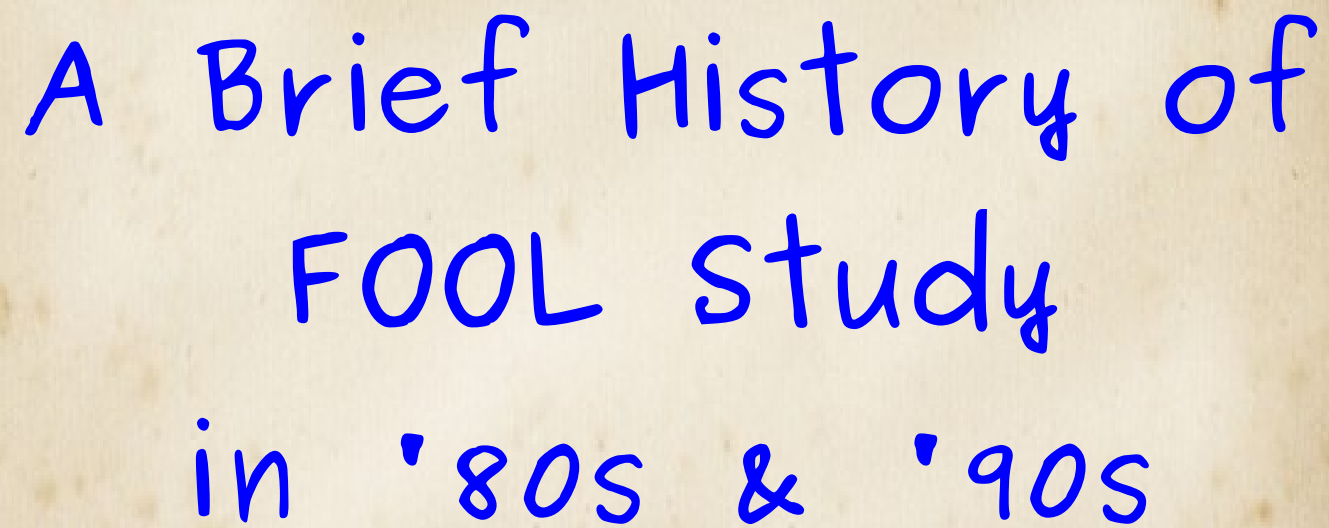 A Brief History of
FOOL Study
in '80s & '90s